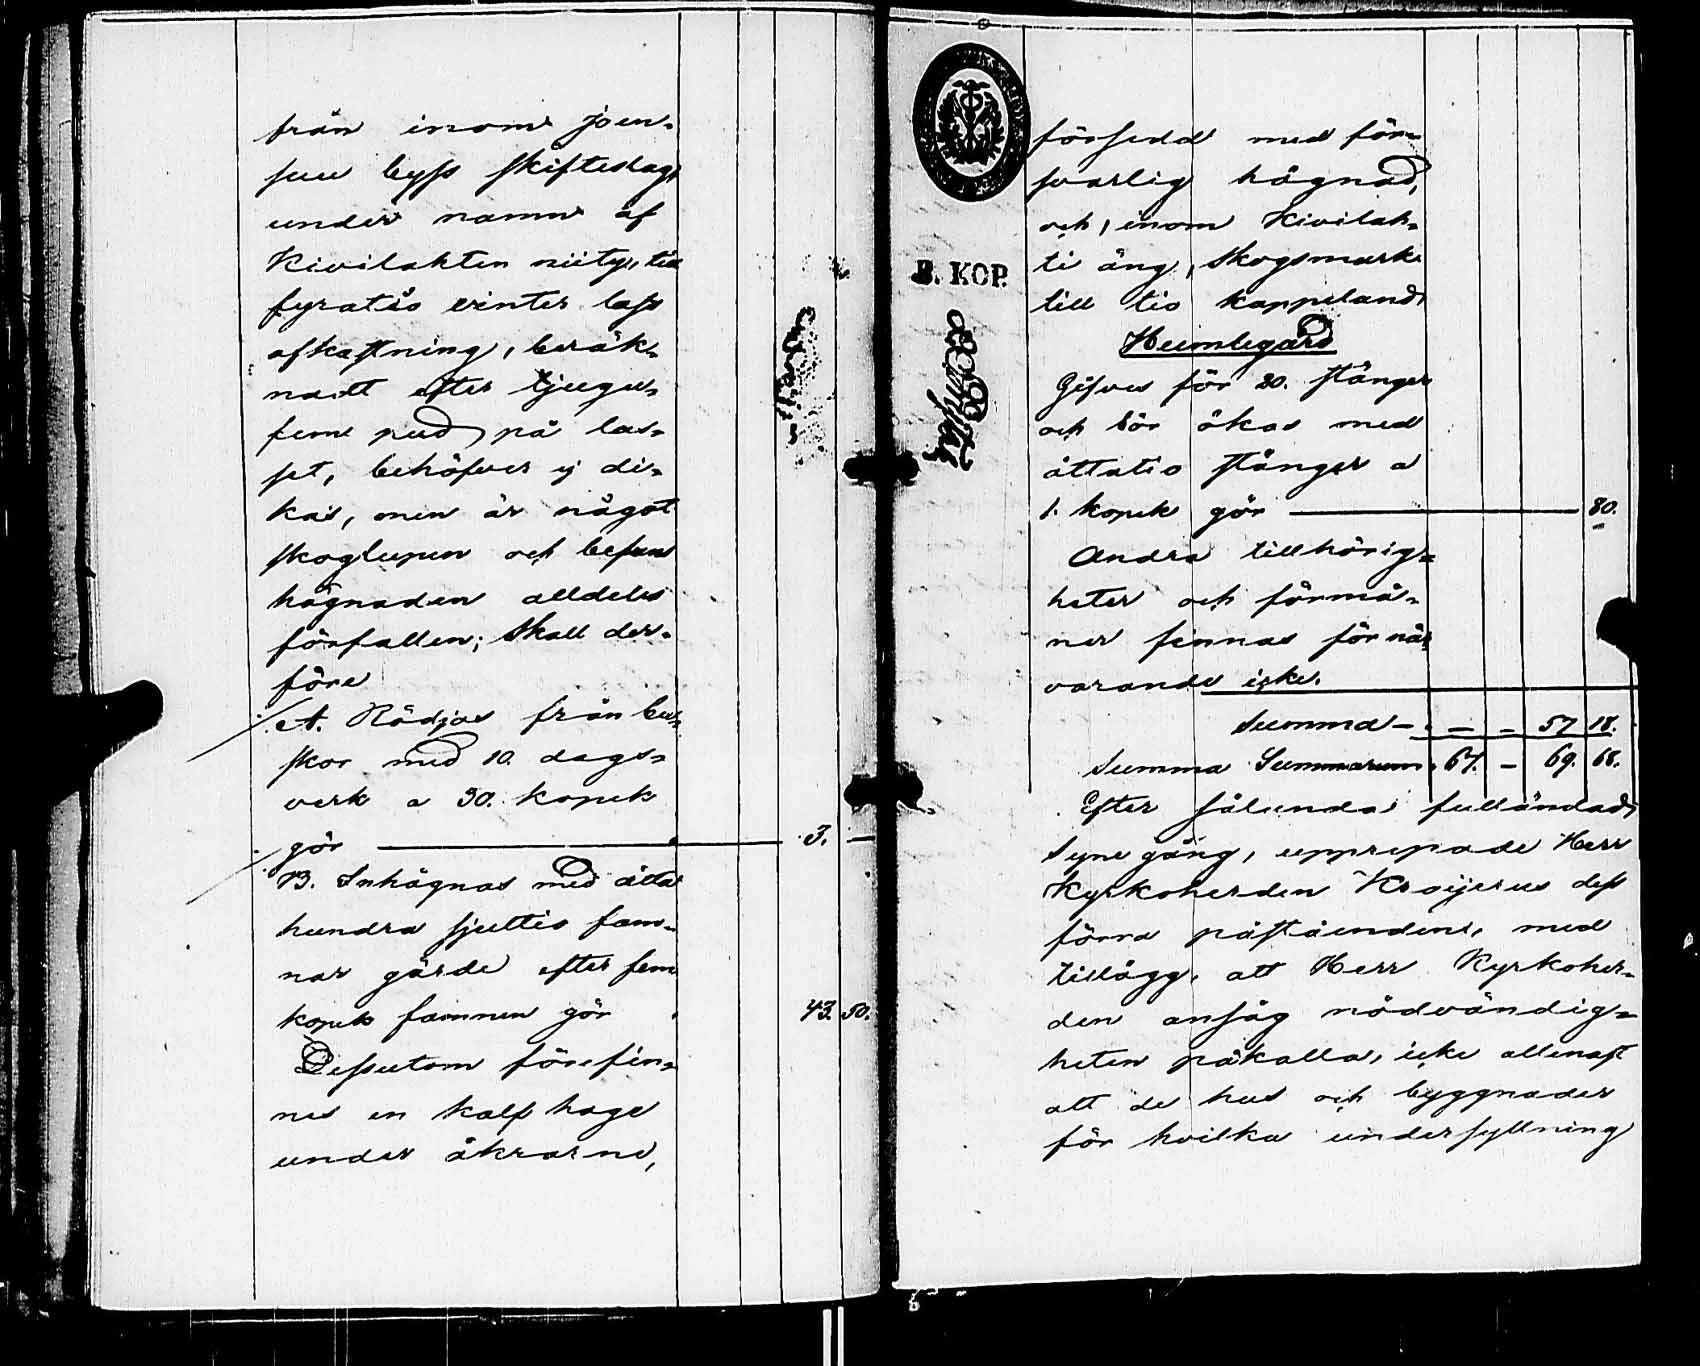 från inom Joen-
suu byss skifteslag,
under namn af
Kivilakten niity, till
fyratio vinter lass
afkastning, beräk-
nadt efter tjugu-
fem pud på las-
set, behöfver ej di-
kas, men är något
skoglupen och befans
hägnaden alldeles
förfallen; skall der-
före
A. Rödjas från bu-
skor med 10. dags-
verk a 30. kopek
gör 3. —
B. Inhägnas med åtta
hundra sjuttio fam-
nar gärde efter fem
kopek famnen gör 43. 50.
Dessutom förefin-
nes en kalf hage
under åkrarne,
försedd med för-
svarlig hägnad,
och, inom Kivilak-
ti äng, skogsmark
till tio kappeland
Humlegård
Gifves för 20. stänger
och bör ökas med
åttatio stänger a
1. kopek gör 80.
Andra tillhörig-
heter och förmå-
ner finnas för när
varande icke.
Summa — — — 57 18.
Summa Summarum 67. — 69. 68.
Efter sålunda fulländad
Syne gång, upprepade Herr
Kyrkoherden Kroijerus dess
förra påståenden, med
tillägg, att Herr Kyrkoher-
den ansåg nödvändig-
heten påkalla, icke allenast
att de hus och byggnader
för hvilka undersyllning
8. KOP.